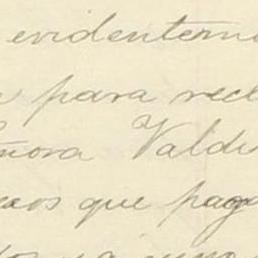 evidentem
para recl
ñora Valdi
xos que paga